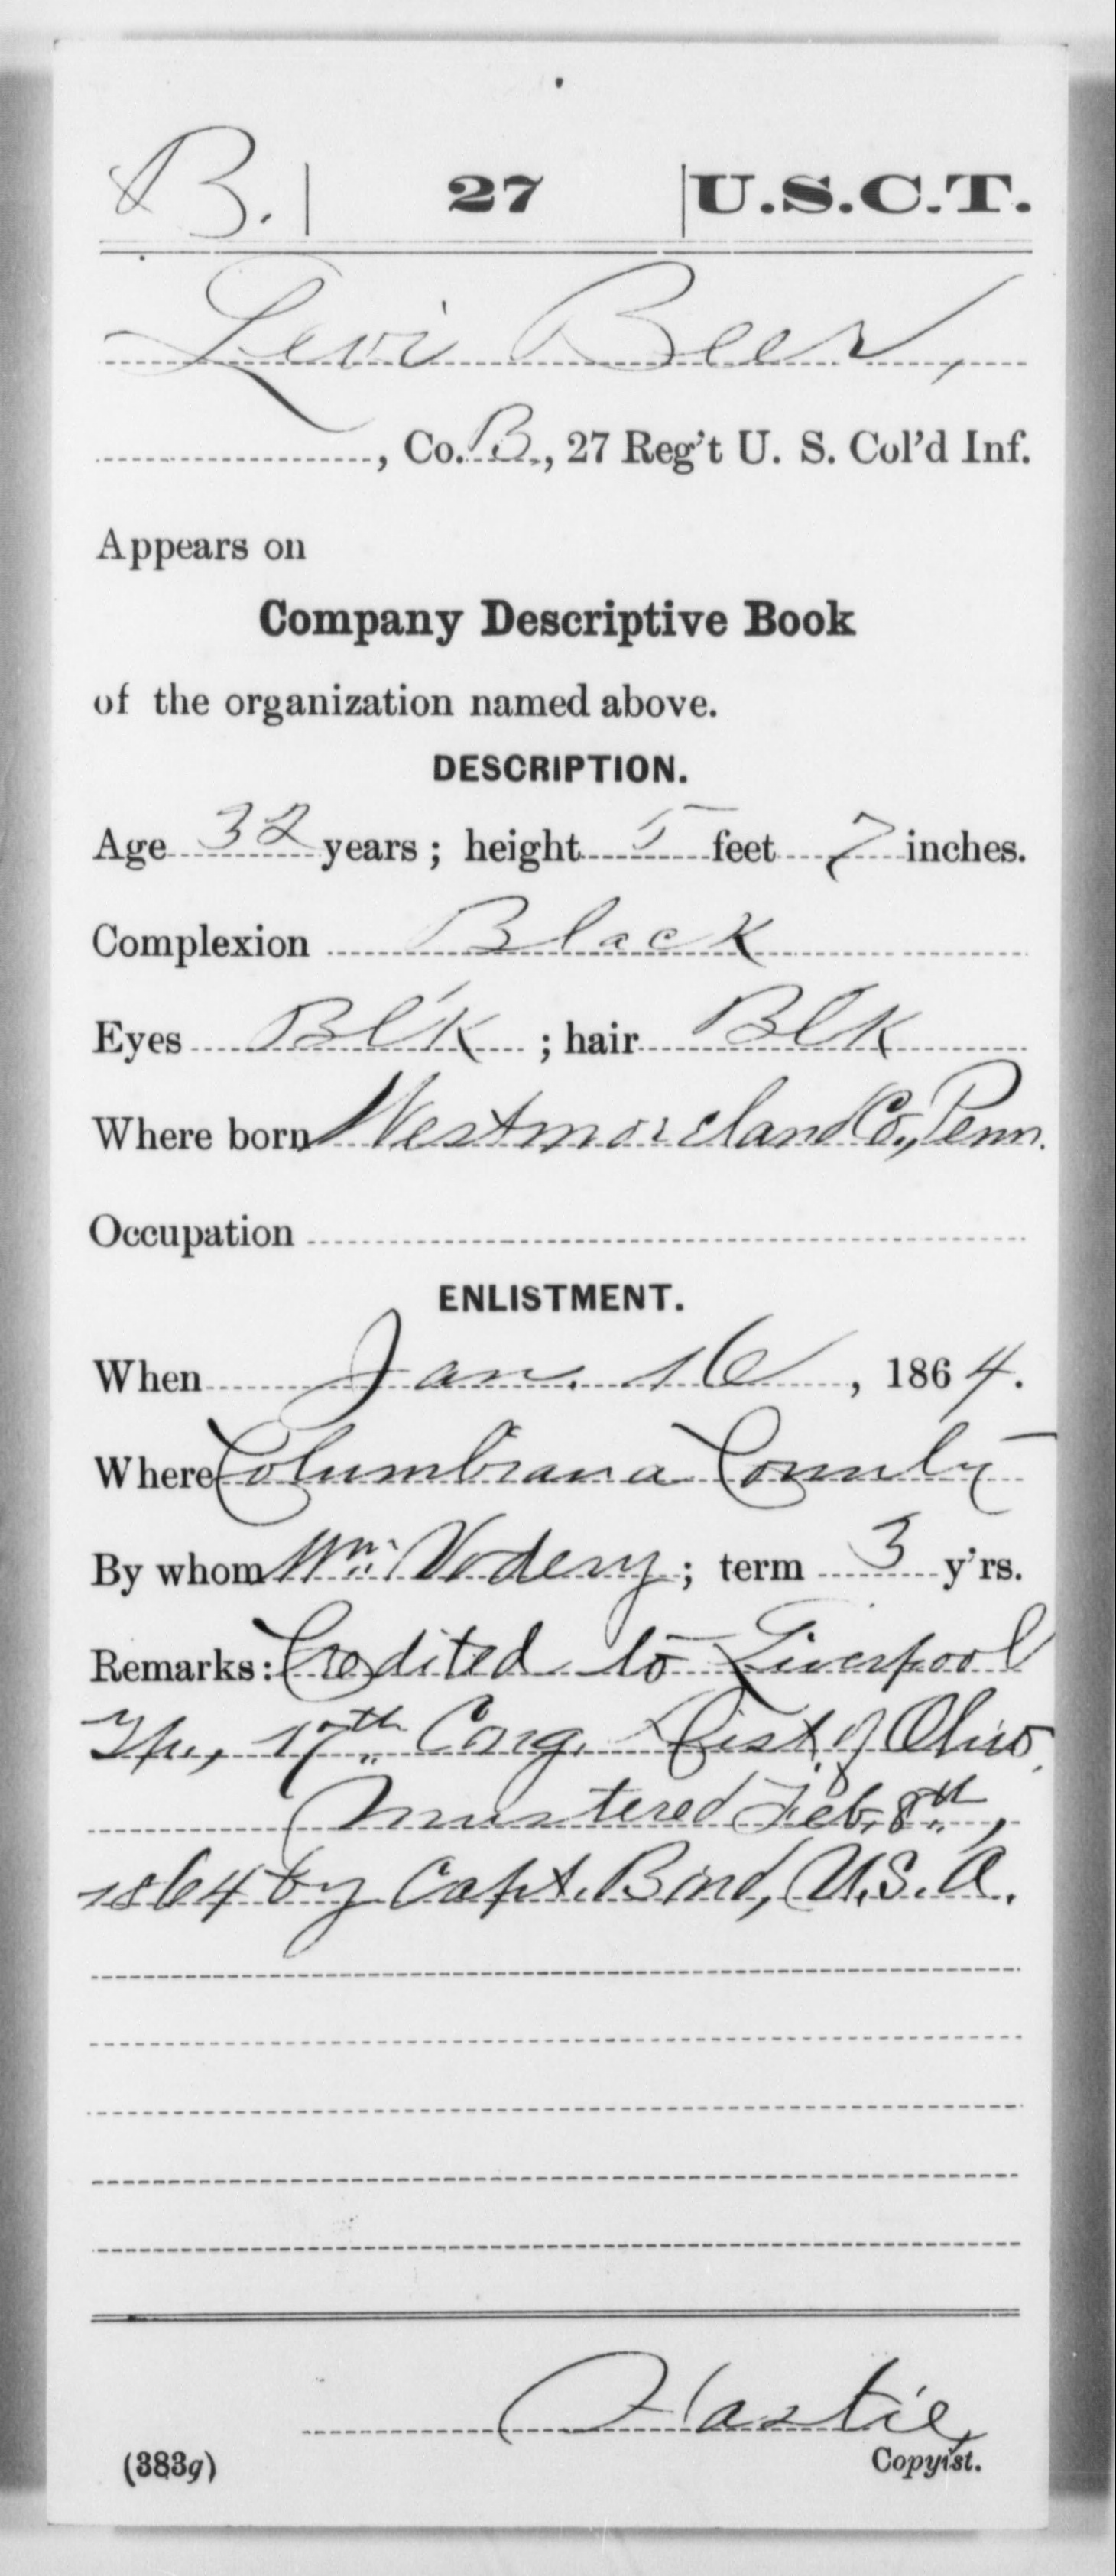 B. | 27 | U.S.C.T.
Levi Beer,
, Co. B., 27 Reg't U. S. Col'd Inf.
Appears on
Company Descriptive Book
of the organization named above.
DESCRIPTION.
Age 32 years; height 5 feet 7 inches.
Complexion Black
Eyes Bl'k ; hair Blk
Where born Westmoreland Co., Penn.
Occupation
ENLISTMENT.
When Jan. 16, 1864.
Where Columbiana County
By whom Wm. Vodery; term 3 y'rs.
Remarks: Credited to Liverpool
Tp., 17th Cong. Dist. of Ohio.
Mustered Feb. 8th,
1864 by Capt. Bird, U.S.A.
Hastie,
(383g) Copyist.